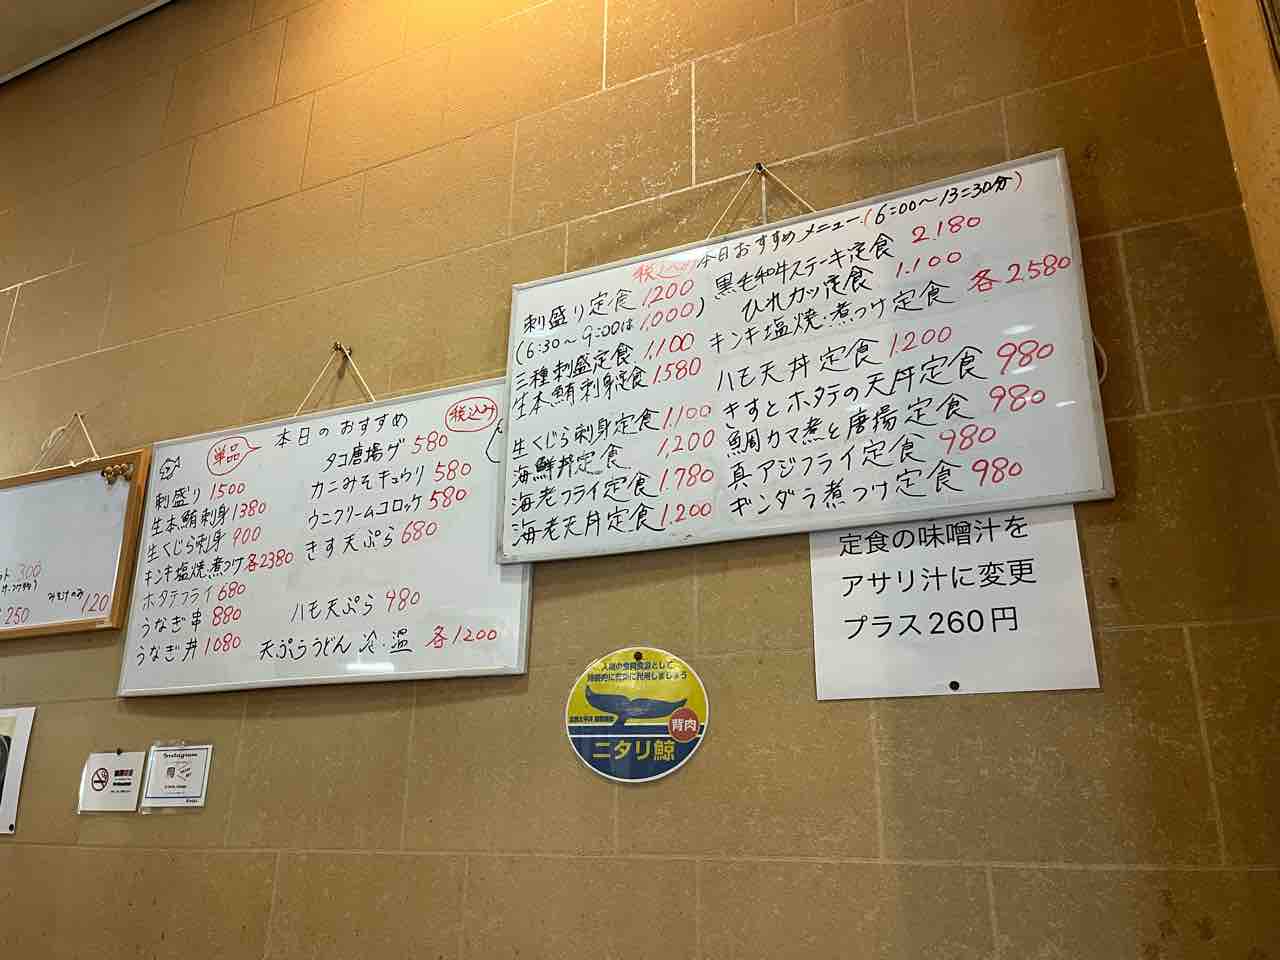 ット 300
250
みそ汁のみ 120
単品
本日のおすすめ
税込み
刺盛り 1500
生本鮪刺身 1380
生くじら刺身 900
キンキ塩焼.煮つけ各2380
ホタテフライ 680
うなぎ串 880
うなぎ丼 1080
タコ唐揚ゲ 580
カニみそキュウリ 580
ウニクリームコロッケ 580
きす天ぷら 680
ハモ天ぷら 480
天ぷらうどん 冷・温 各1200
税込み 本日おすすめメニュー(6:00〜13:30分)
刺盛り定食 1200
(6:30〜9:00は1,000)
三種刺盛定食 1,100
生本鮪刺身定食 1.580
生くじら刺身定食 1.100
海鮮丼定食 1,200
海老フライ定食 1.780
海老天丼定食 1.200
黒毛和牛ステーキ定食 2.180
ひれカツ定食 1.100
キンキ塩焼.煮つけ定食 各2580
ハモ天丼定食 1.200
きすとホタテの天丼定食 980
鯛カマ煮と唐揚定食 980
真アジフライ定食 980
ギンダラ煮つけ定食 980
定食の味噌汁を
アサリ汁に変更
プラス260円
人類の食糧資源として
持続的に有効に利用しましょう
背肉
ニタリ鯨
Instagram